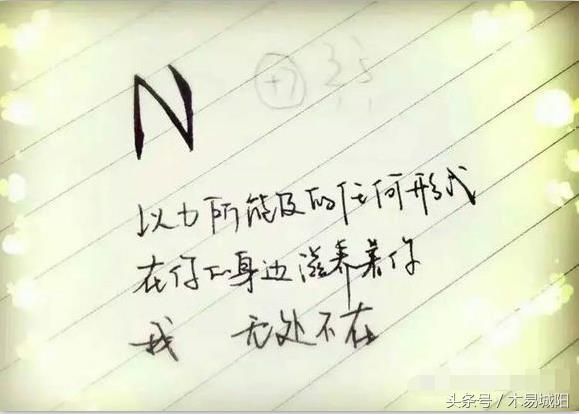 N
以力所能及的任何形式
在你的身边滋养着你
我 无处不在
头条号／木易城阳